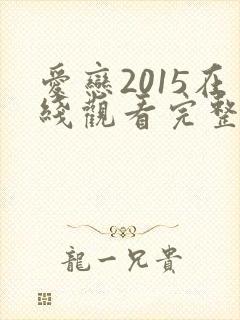 愛戀2015在
綫觀看完整
龍一兄貴